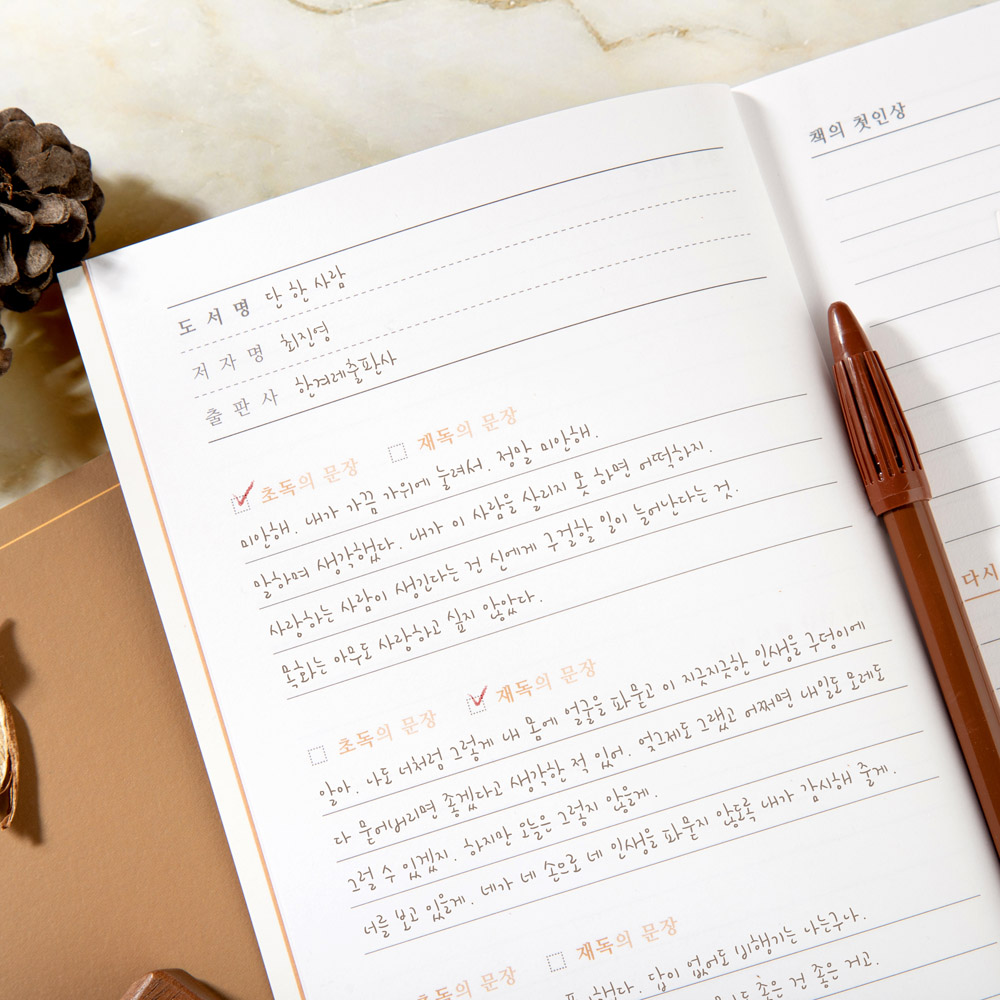 도서명 단 한 사람
저자명 최진영
출판사 한겨레출판사
초독의 문장 재독의 문장
미안해. 내가 가끔 가위에 눌려서. 정말 미안해.
말하며 생각했다. 내가 이 사람을 살리지 못 하면 어떡하지.
사랑하는 사람이 생긴다는 건 신에게 구걸할 일이 늘어난다는 것.
목화는 아무도 사랑하고 싶지 않았다.
초독의 문장 재독의 문장
알아. 나도 너처럼 그렇게 내 몸에 얼굴을 파묻고 이 지긋지긋한 인생을 구덩이에
다 묻어버리면 좋겠다고 생각한 적 있어. 엊그제도 그랬고 어쩌면 내일도 모레도
그럴 수 있겠지. 하지만 오늘은 그렇지 않을게.
너를 보고 있을게. 네가 네 손으로 네 인생을 파묻지 않도록 내가 감시해 줄게.
초독의 문장 재독의 문장
했다. 답이 없어도 비행기는 나는구나.
좋은 건 좋은 거고.
책의 첫인상
다시